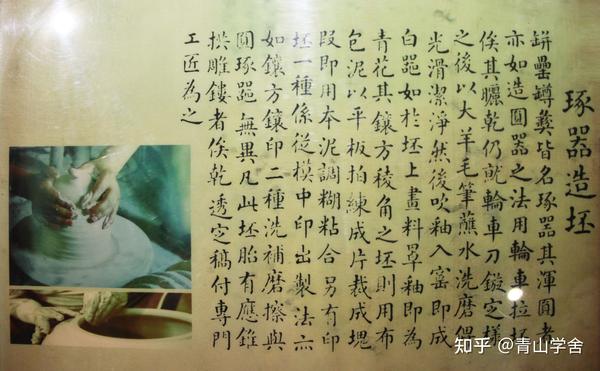 琢器造坯
缾罍罇彝皆名琢器其渾圓者
亦如造圓器之法用輪車拉坯
俟其曬乾仍就輪車刀鏇定樣
之後以大羊毛筆蘸水洗磨
光滑潔淨然後吹釉入窰即成
白器如於坯上畫料罩釉即為
青花其鑲方稜角之坯則用布
包泥以平板拍練成片裁成塊
段即用本泥調糊粘合另有印
坯一種係從模中印出製法亦
如鑲方鑲印二種洗補磨擦與
圓琢器無異凡此坯胎有應錐
拱雕鏤者俟乾透定稿付專門
工匠為之
知乎 @青山学舍